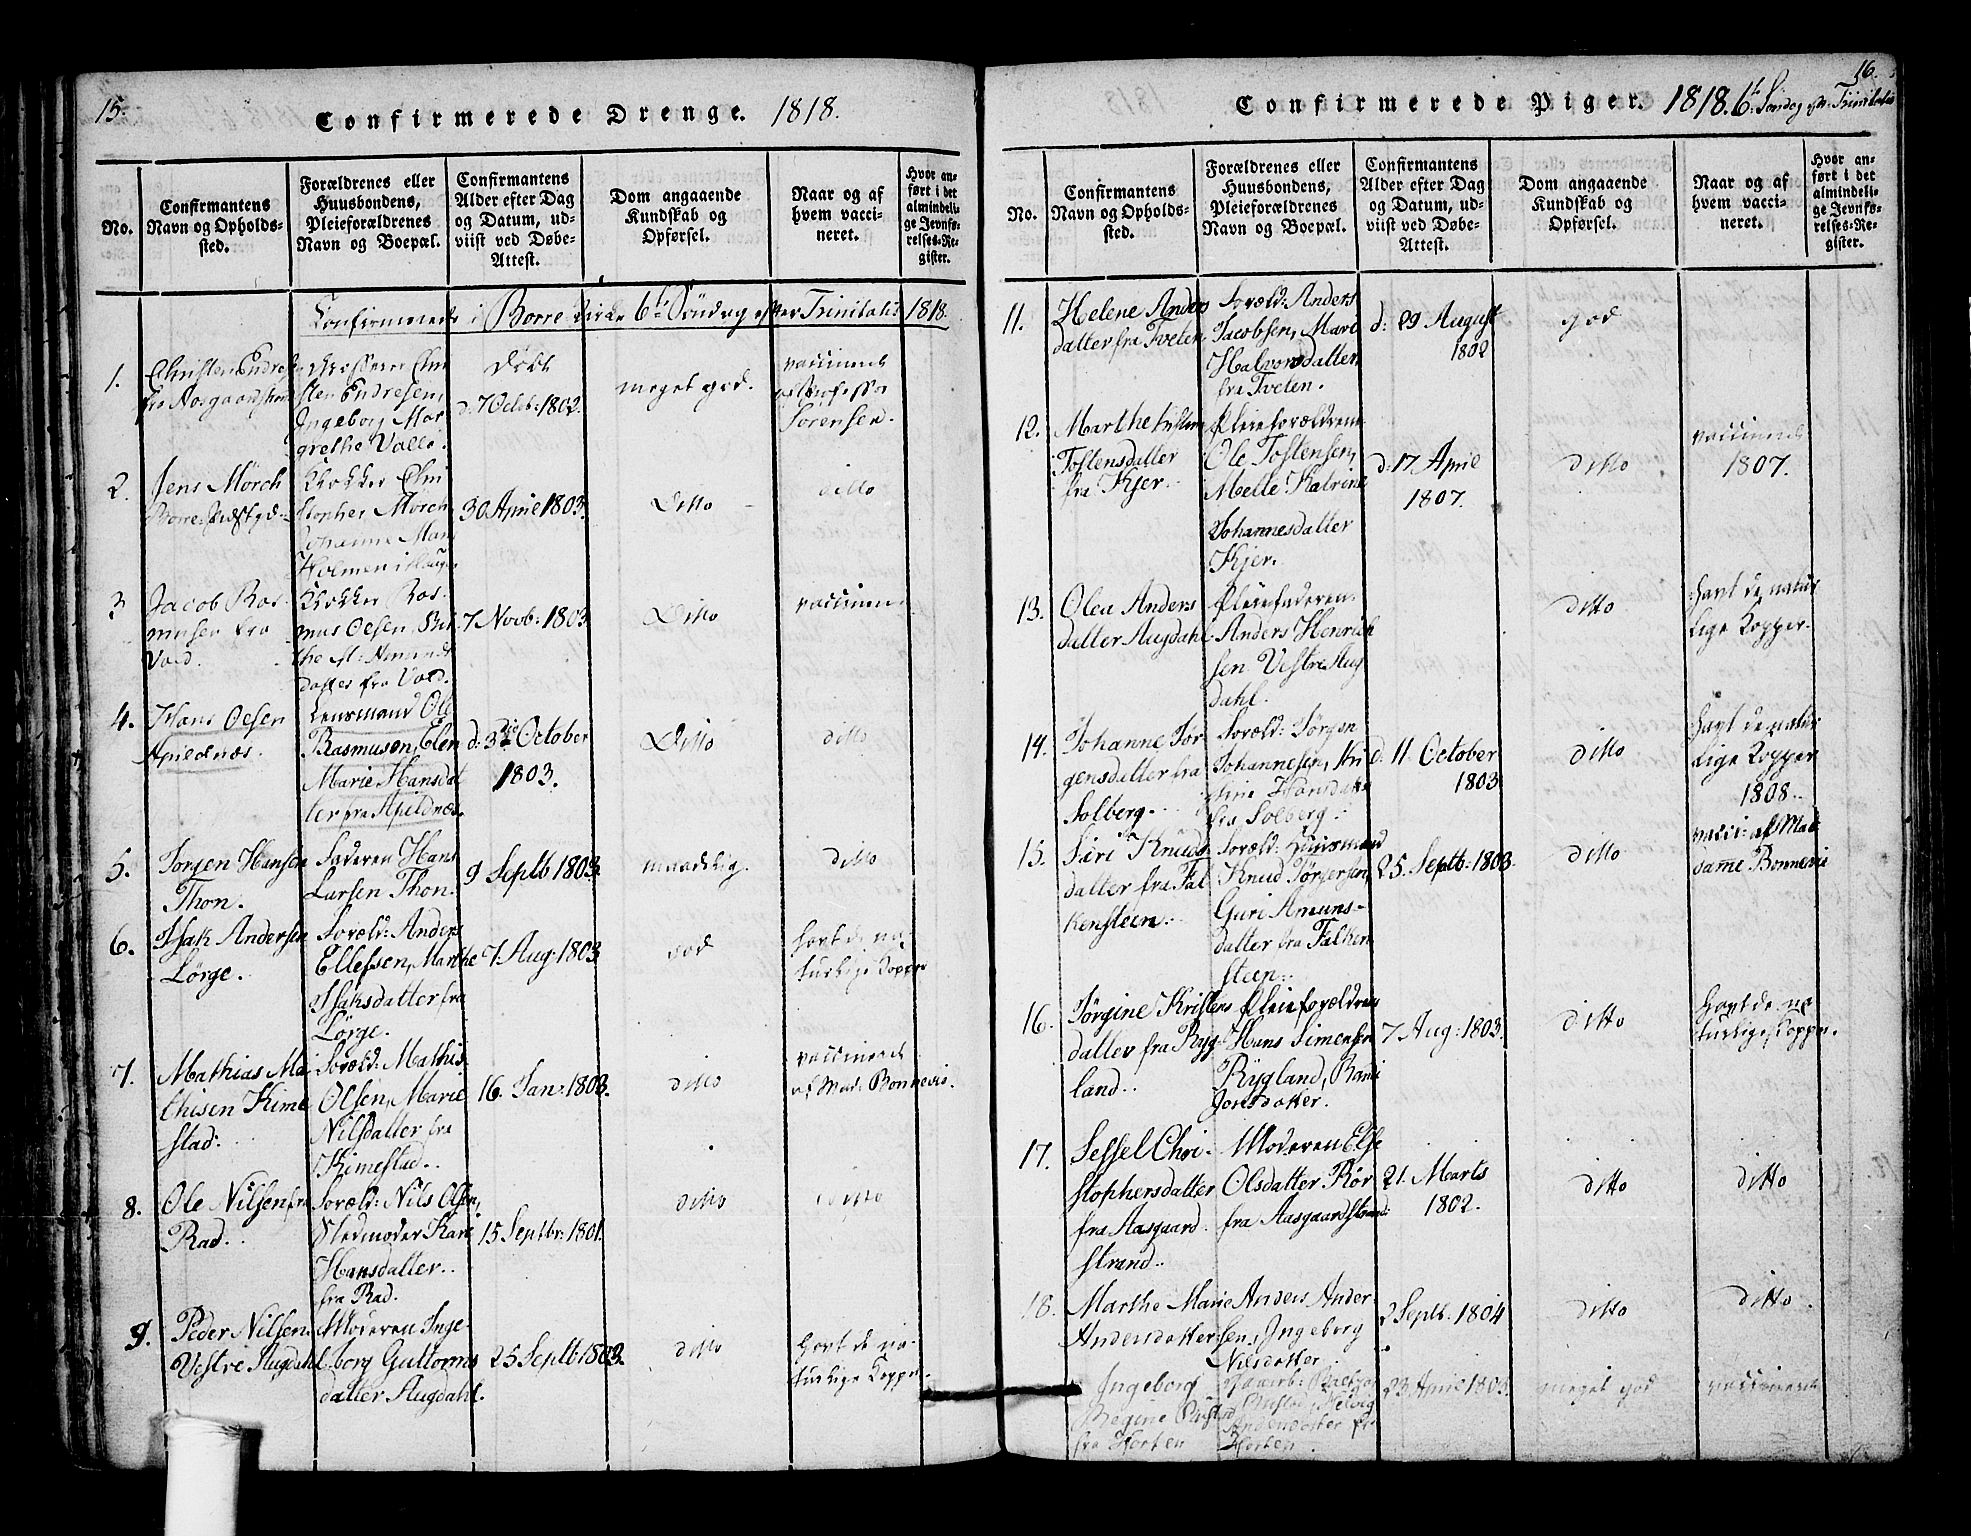 15.
Confirmerede Drenge. 1818.
No.
Confirmantens
Navn og Opholds-
sted.
Forældrenes eller
Huusbondens,
Pleieforældrenes
Navn og Boepæl.
Confirmantens
Alder efter Dag
og Datum, ud-
viist ved Døbe-
Attest.
Dom angaaende
Kundskab og
Opførsel.
Naar og af
hvem vacci-
neret.
Hvor an-
ført i det
almindeli-
ge Jevnfø-
relses-Re-
gister.
i Borre Kirke 6te Söndag efter Trinitatis 1818.
1.
Christen Endre
fra Aasgaardstran
sten Endresen,
Ingeborg Mar
grethe Valle.
Döbt
d: 7 Octb: 1802.
meget god.
vaccineret
af Professor
Sörensen.
2.
Jens Mörch
Borre Præstgd
Klokker Chri
stopher Mörch
Johanne Mar
Holmen i
30 April 1803.
Ditto
ditto
3
Jacob Ras-
musen fra
Vold.
Klokker Ras-
mus Olsen, Bir
the M:
datter fra Vold.
7 Novb: 1803
Ditto
vaccineret
4.
Hans Olsen
Apildnæs.
Lensmand Ole
Rasmusen, Elen
Marie Hansdat
ter fra Apildnæs.
d: 3die October
1803.
Ditto
ditto
5.
Jorgen Hansen
Thon.
Faderen Hans
Larsen Thon.
9 Septb 1803.
maadelig.
ditto
6.
Isak Andersen
Lörge.
Foræld: Anders
Ellefsen, Marthe
Isaksdatter fra
Lörge.
7 Aug: 1803
god
havt de na-
turlige Kopper
7.
Mathias Ma-
thisen Kime
stad.
Foræld: Mathis
Olsen, Marie
Nilsdatter fra
Kimestad.
16. Jan: 1803.
ditto
vaccineret
af Mad: Bonnevie.
8.
Ole Nilsen fra
Rad.
Foræld: Nils Olsen,
Stedmoder Kari
Hansdatter
fra Rad.
15 Septbr: 1801.
ditto
ditto
9.
Peder Nilsen
Vestre Augdahl
Moderen Inge-
borg Guttorms
datter Augdahl.
25 Septb 1803.
ditto
havt de na-
turlige Kopper.
16.
Confirmerede Piger. 1818. 6te Söndag eft. Trinitatis
No.
Confirmantens
Navn og Opholds-
sted.
Forældrenes eller
Huusbondens,
Pleieforældrenes
Navn og Boepæl.
Confirmantens
Alder efter Dag
og Datum, ud-
viist ved Døbe-
Attest.
Dom angaaende
Kundskab og
Opførsel.
Naar og af
hvem vacci-
neret.
Hvor an-
ført i det
almindeli-
ge Jevnfø-
relses-Re-
gister.
11.
Helene Anders
datter fra Tveten
Foræld: Anders
Jacobsen, Mari
Halvorsdatter
fra Tveten.
d: 29 August
1802
god
12.
Marthe
Tostensdatter
fra Kjer.
Pleieforældrene
Ole Tostensen,
Melle Katrine
Johannesdatter
Kjer.
d: 17 April
1807.
ditto
vaccineret
1807.
13.
Olea Anders
datter Augdahl
Pleiefaderen
Anders Henrich
sen Vestre Aug
dahl.
ditto
havt de natur
lige Kopper.
14.
Johanne Jör
gensdatter fra
Solberg.
Foræld: Jörgen
Johannesen, Kri
stine Hansdatter
fra Solberg.
d. 11 October
1803
ditto
havt de natur
lige Kopper
1808.
15.
Siri Knuds
datter fra Fal
kensteen.
Foræld: Huusmand
Knud Jörgensen,
Guri Amuns-
datter fra Falken
steen.
25 Septb: 1803.
ditto
vacci: af Ma-
dame Bonnevie
16.
Jörgine Kristens
datter fra Ryg
land.
Pleieforældrene
Hans Simensen
Rygland,
Jonsdatter.
7 Aug: 1803.
ditto
havt de na
turlige Kopper.
17.
Sessel Chri-
stophersdatter
fra Aasgaard
strand.
Moderen Else
Olsdatter Rör
fra Aasgaardstrand
21. Marts
1802.
ditto
ditto
18.
Marthe Marie
Andersdatter
Anders Ander
sen, Ingeborg
Nilsdatter
2 Septb. 1804
ditto
ditto
Ingeborg
Regine
fra Horten
Andersdatter fr
Horten.
23 April 1803.
meget god
vaccineret